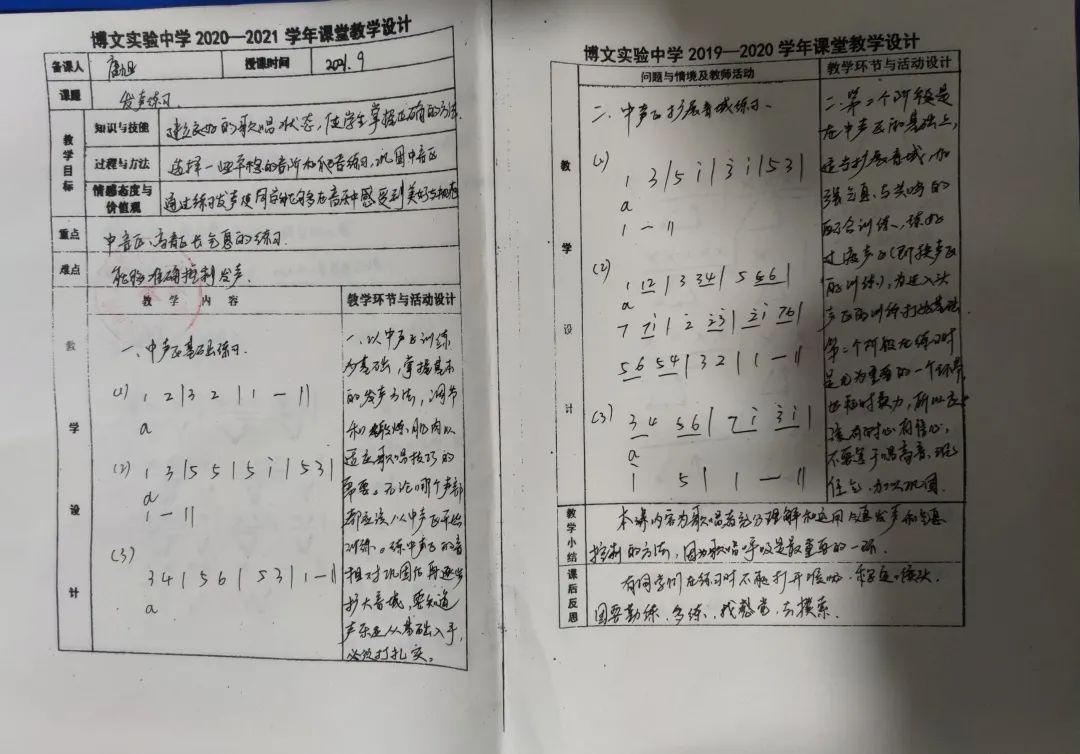 博文实验中学2020—2021学年课堂教学设计
备课人
授课时间 2021.9
课题 发声练习
教学目标
知识与技能 建立良好的歌唱状态,使学生掌握正确的方法.
过程与方法 选择一些平稳的音阶和爬音练习,巩固中音区
情感态度与价值观 通过练习发声使同学能够在音乐中感受到美好与
重点 中音区、高音区长气息的练习.
难点 能够准确控制发声.
教学内容
教学环节与活动设计
教学设计
一、中声区基础练习.
(1) 1 2 | 3 2 | 1 — ||
a
(2) 1 3 | 5 5 | 5 i | 5 3 |
a
1 — ||
(3)
3 4 | 5 6 | 5 3 | 1 — ||
a
一、以中声区训练
为基础,掌握基本
的发声方法,调节
和锻炼肌肉以
适应歌唱技巧的
需要。无论哪个声部
都应该从中声区开始
训练。练中声区的音
相对巩固后再逐步
扩大音域,要知道
声乐是从基础入手,
必须打扎实。
博文实验中学2019—2020学年课堂教学设计
问题与情境及教师活动
教学环节与活动设计
教学设计
二、中声区扩展音域练习.
(1)
1 3 | 5 i | 3 i | 5 3 |
a
1 — ||
(2)
1 12 | 3 34 | 5 56 |
a
7 7i | 2 23 | 2i 76 |
56 54 | 3 2 | 1 — ||
(3) 34 56 | 7i 3i |
a
i 5 | 1 — ||
二、第二个阶段是
在中声区的基础上,
适当扩展音域,加
强气息与共鸣的
配合训练,练好
过渡声区(即换声区
的训练),为进入头
声区的训练打好基础.
第二个阶段在练习时
是尤为重要的一个环节,
也耗时费力,所以应
该有耐心有信心,
不要急于唱高音,
住气,加以巩固.
教学小结
本课内容为歌唱者充分理解和运用气息发声和气息
控制的方法,因为歌唱呼吸是最重要的一环.
课后反思
有同学们在练习时不能打开喉咙,
因要勤练、多练,找感觉,去摸索.